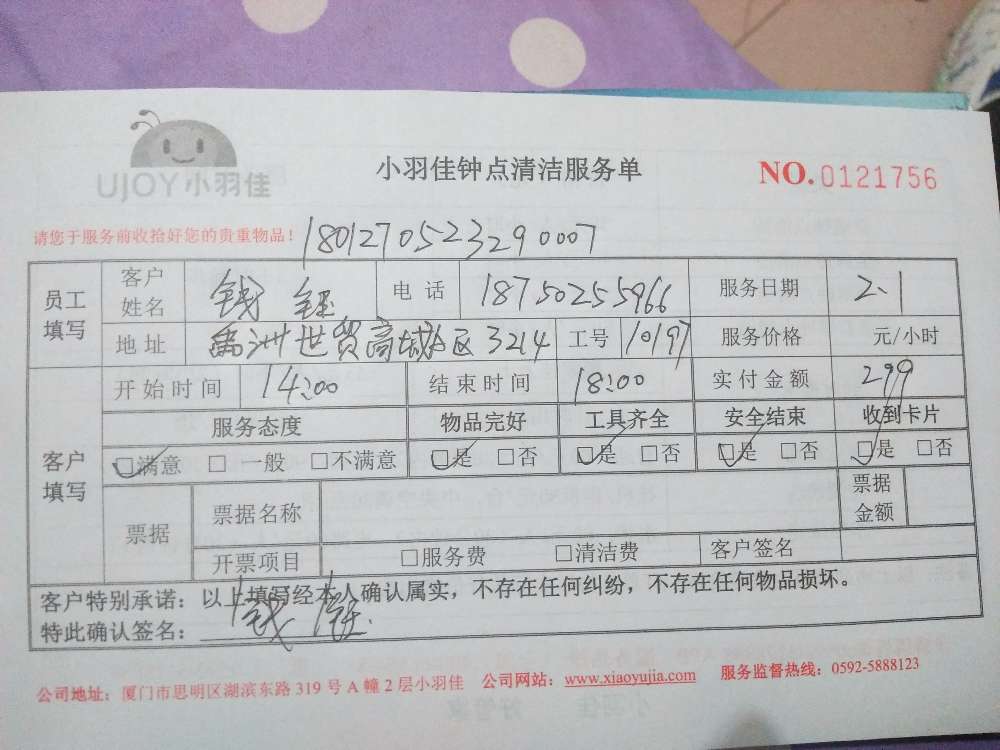 UJOY小羽佳
小羽佳钟点清洁服务单
NO.0121756
请您于服务前收拾好您的贵重物品！
1801270523290007
员工填写 客户姓名 钱 电话 18750255966 服务日期 2.1
地址 禹洲世贸商城 区 3214 工号 10197 服务价格 元/小时
客户填写 开始时间 14:00 结束时间 18:00 实付金额 299
服务态度 物品完好 工具齐全 安全结束 收到卡片
☑满意 □一般 □不满意 ☑是 □否 ☑是 □否 ☑是 □否 ☑是 □否
票据 票据名称 票据金额
开票项目 □服务费 □清洁费 客户签名
客户特别承诺：以上填写经本人确认属实，不存在任何纠纷，不存在任何物品损坏。
特此确认签名：钱
公司地址：厦门市思明区湖滨东路319号A幢2层小羽佳 公司网站：www.xiaoyujia.com 服务监督热线：0592-5888123